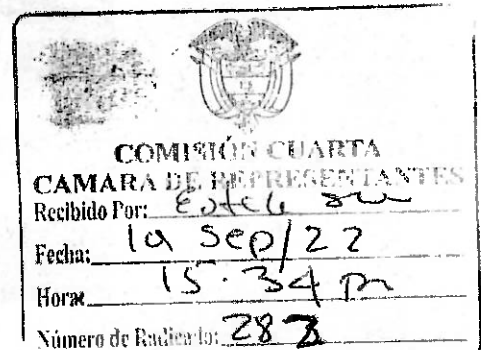 COMISIÓN CUARTA
CAMARA DE REPRESENTANTES
Recibido Por:
Fecha: 19 Sep/22
Hora: 15:34 pm
Número de Radicado: 283